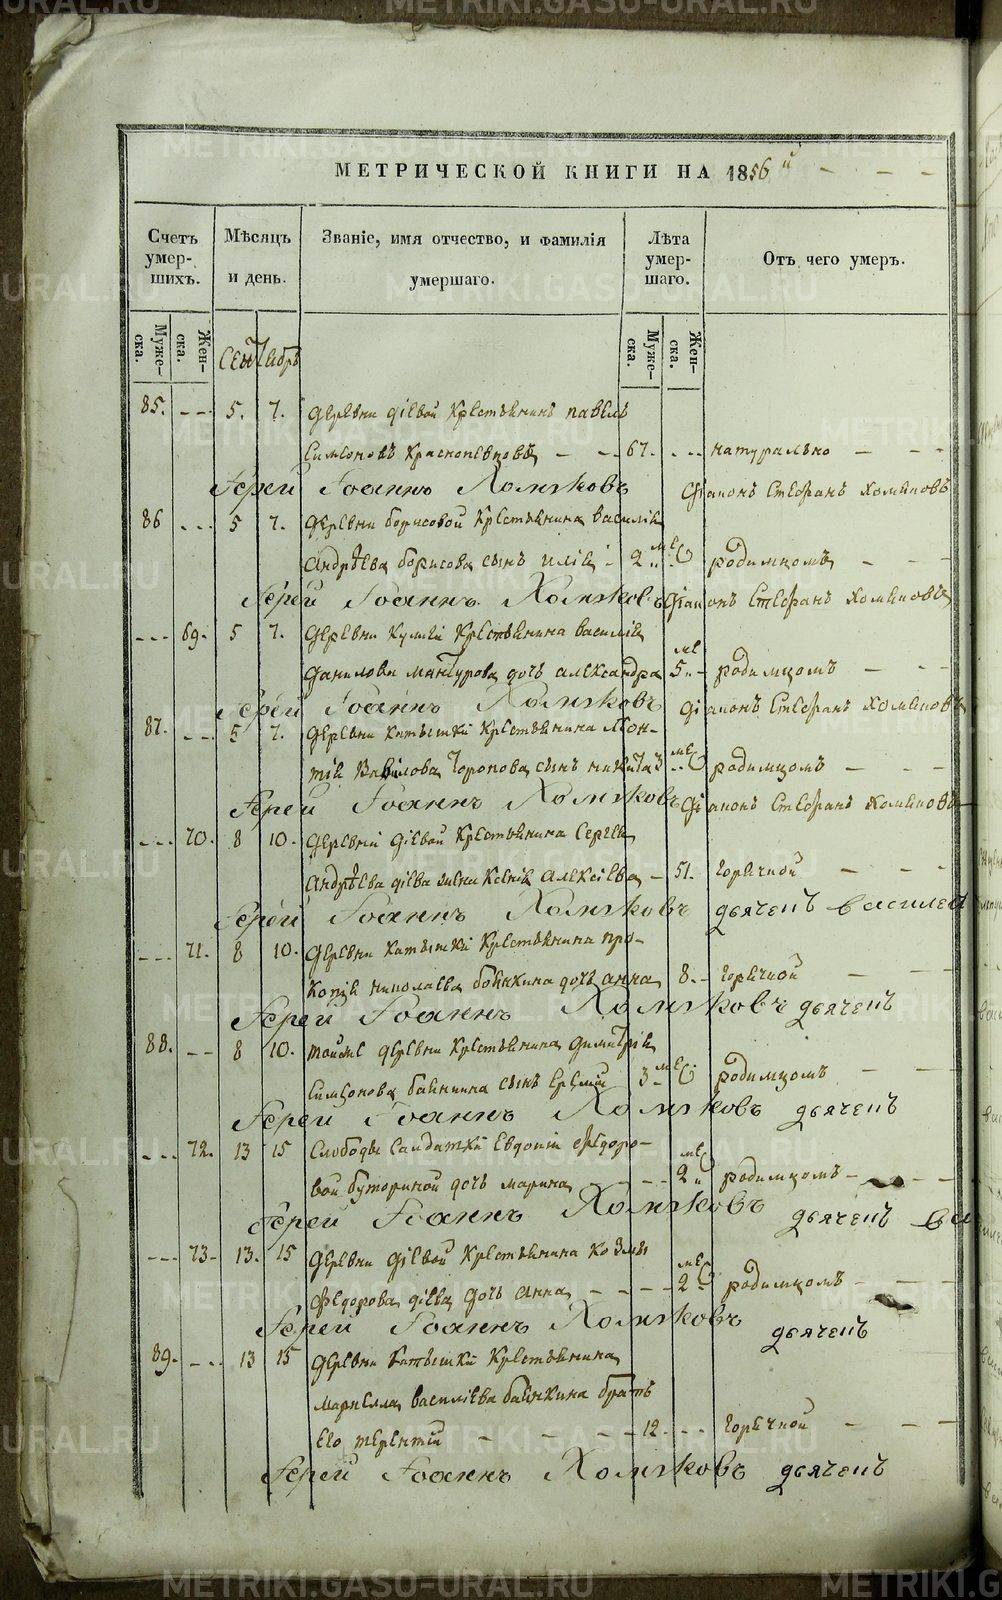 МЕТРИЧЕСКОЙ КНИГИ НА 1856й
Счетъ умер- шихъ.
Мѣсяцъ и день.
Званіе, имя отчество, и фамилія умершаго.
Лѣта умер- шаго.
Отъ чего умеръ.
Муже- ска.
Жен- ска.
Сентябрь
Муже- ска.
Жен- ска.
85. 5. 7. деревни діевой крестьянинъ павелъ
Симеоновъ 67. натурально
Іерей Іоаннъ Хомяковъ діаконъ Стефанъ
86 5 7. деревни борисовой крестьянина василія
Андрѣева борисова сынъ илія 2 ме родимцомъ
Іерей Іоаннъ Хомяковъ діаконъ Стефанъ
69. 5 7. деревни крестьянина василія
данилова мантурова дочь александра 5 ме родимцомъ
Іерей Іоаннъ Хомяковъ діаконъ Стефанъ
87. 5 7. деревни катышки крестьянина леон-
тія Вавилова сынъ никита 3 ме родимцомъ
Іерей Іоаннъ Хомяковъ діаконъ Стефанъ
70. 8 10. деревни діевой крестьянина Сергея
Андрѣева діева жена Ксенія алексіева 51. горячкой
Іерей Іоаннъ Хомяковъ дьячекъ василей
71. 8 10. деревни катышки крестьянина про-
копія николаева байнкина дочь анна 8. горячкой
Іерей Іоаннъ Хомяковъ дьячекъ
88. 8 10. тойже деревни крестьянина димитрія
Симеонова сынъ Еремій 3 ме родимцомъ
Іерей Іоаннъ Хомяковъ дьячекъ
72. 13 15 Слободы Салдатки Евдокіи Федоро-
вой буториной дочь марина 2 ме родимцомъ
Іерей Іоаннъ Хомяковъ дьячекъ ва
73 13. 15 деревни діевой крестьянина козмы
Федорова діева дочь анна 2 ме родимцомъ
Іерей Іоаннъ Хомяковъ дьячекъ
89. 13 15 деревни катышки крестьянина
василіева байнкина братъ
его терентій 12. горячкой
Іерей Іоаннъ Хомяковъ дьячекъ
METRIKI.GASO-URAL.RU